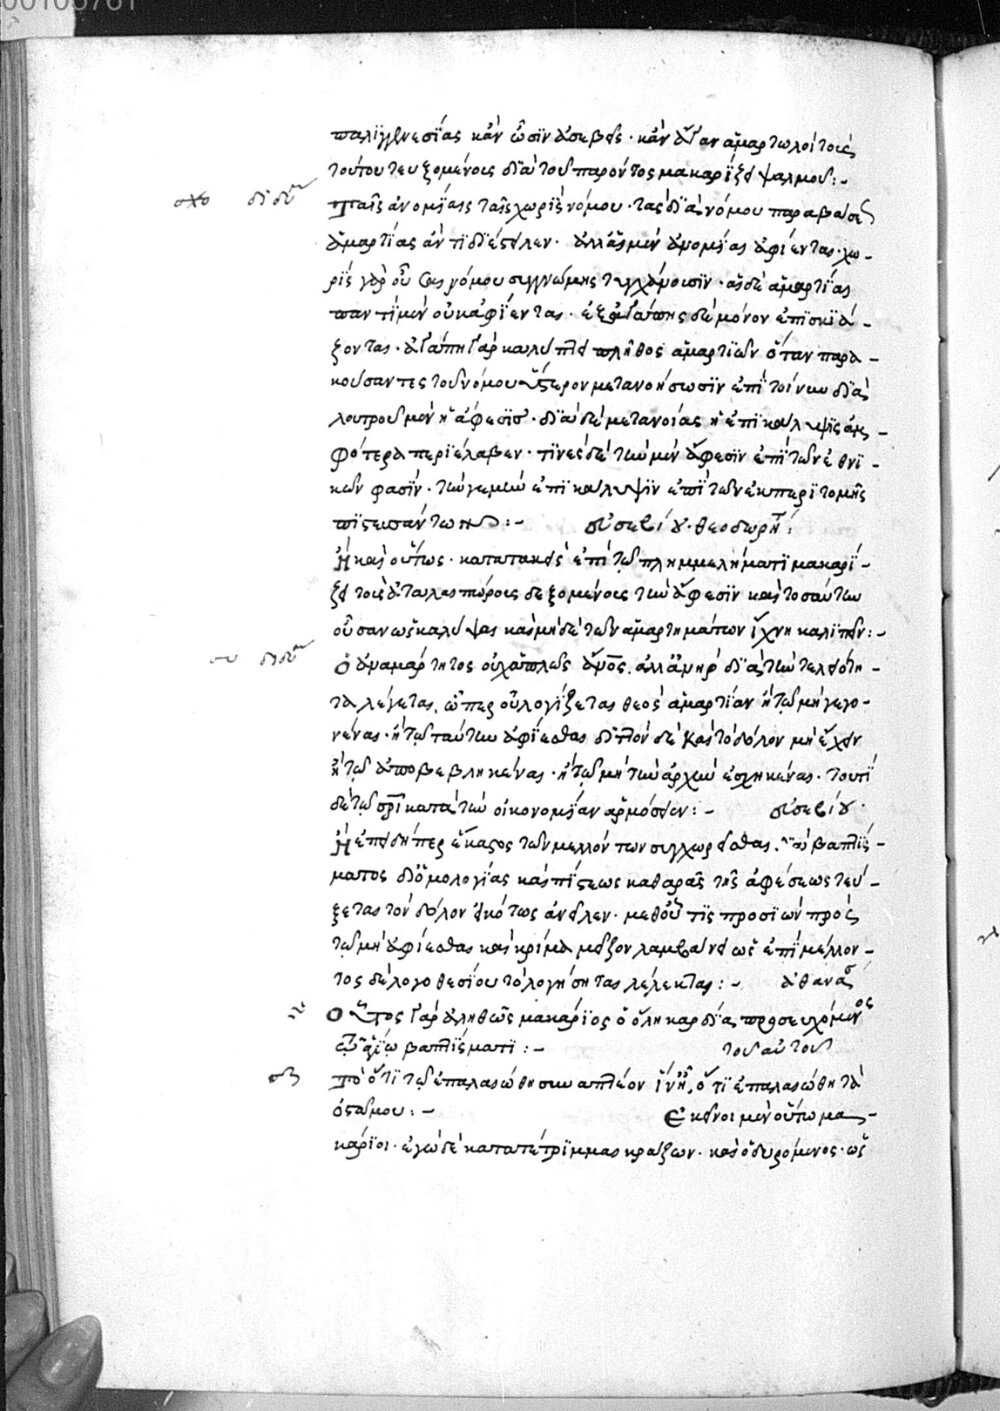 00105761
παλιγγενεσίας κἂν ὦσιν ἀσεβεῖς· κἂν ἄγαν ἁμαρτωλοί τοὺς
τούτου τευξομένους διὰ τοῦ παρόντος μακαρίζει ψαλμοῦ:-
σχο διδύ
Ταῖς ἀνομίαις ταῖς χωρὶς νόμου· τὰς διὰ νόμου παραβάσεις
ἁμαρτίας ἀντιδιέστειλεν· ἀλλὰ μὲν ἀνομίας ἀφίενται· χω-
ρὶς γὰρ οὖσαι νόμου συγγνώμης τυγχάνουσιν· αἱ δὲ ἁμαρτίαι
παντὶ μὲν οὐκ ἀφίενται· ἐξ ἀγάπης δὲ μόνον ἐπισκιά-
ζονται· ἀγάπη γὰρ καλύπτει πλῆθος ἁμαρτιῶν ὅταν παρα-
κούσαντες τοῦ νόμου ὕστερον μετανοήσωσιν ἐπεὶ τοίνυν διὰ
λουτροῦ μὲν ἡ ἄφεσις· διὰ δὲ μετανοίας ἡ ἐπικάλυψις ἀμ-
φότερα περιέλαβεν· τινὲς δὲ τὴν μὲν ἄφεσιν ἐπὶ τῶν ἐθνι-
κῶν φασίν· τὴν γε μὴν ἐπικάλυψιν ἐπὶ τῶν ἐκ περιτομῆς
πιστευσάντων:- εὐσεβίου· θεοδωρή:
Ἢ καὶ οὕτως· καταπακεὶς ἐπὶ τῷ πλημμελήματι μακαρί-
ζει τοὺς ἀταλαιπώρους δεξομένους τὴν ἄφεσιν καὶ τοσαύτην
οὖσαν ὡς καλύψαι καὶ μηδὲ τῶν ἁμαρτημάτων ἴχνη καλιπεῖν:-
διδύ
Ὁ ἀναμάρτητος οὐχ ἁπλῶς ἄνος, ἀλλ' ἀνὴρ διὰ τὴν τελειότη-
τα λέγεται, ᾧπερ οὐ λογίζεται θεὸς ἁμαρτίαν ἢ τῷ μὴ γεγο-
νέναι· ἢ τῷ ταύτην ἀφίεσθαι διπλὸν δὲ καὶ τὸ δόλον μὴ ἔχειν
ἢ τῷ ἀποβεβληκέναι· ἢ τῷ μὴ τὴν ἀρχὴν ἐσχηκέναι· τουτὶ
δὲ τῷ σρι κατὰ τὴν οἰκονομίαν ἁρμόσειεν:- εὐσεβίου·
Ἢ ἐπειδήπερ ἕκαστος τῶν μελλόντων συγχωρεῖσθαι διὰ βαπτίσ-
ματος δι' ὁμολογίας καὶ πίστεως καθαρᾶς τῆς ἀφέσεως τεύ-
ξεται τὸν δόλον εἰκότως ἀνεῖλεν· μεθ' οὗ τις προσιὼν πρὸς
τῷ μὴ ἀφίεσθαι καὶ κρίμα μεῖζον λαμβάνει ὡς ἐπὶ μέλλον-
τος δὲ λογοθεσίου τὸ λογήσηται λέλεκται:- ἀθανασ
Οὗτος γὰρ ἀληθῶς μακάριος ὁ ὅλῃ καρδίᾳ προσευχόμενος
τῷ ἁγίῳ βαπτίσματι:- τοῦ αὐτοῦ
Τὸ ὅτι τῷ ἐπαλαιώθησαν ἁπλέον ἵν' ᾖ, ὅτι ἐπαλαιώθη τὰ
ὀστᾶ μου:- Ἐκεῖνοι μὲν οὕτω μα-
κάριοι· ἐγὼ δὲ κατατέτριμμαι κράζων· καὶ ὀδυρόμενος· ὡς